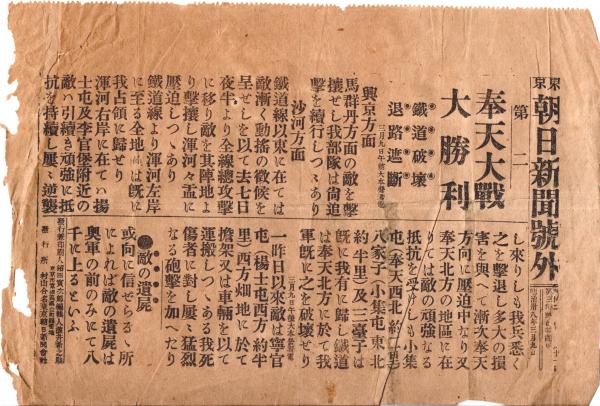 東京
朝日新聞號外
第二
奉天大戰
大勝利
鐵道破壞
退路遮斷
三月九日午前大本營着電
興京方面
馬群丹方面の敵を擊
攘せし我部隊は尙追
擊を續行しつゝあり
沙河方面
鐵道線以東に在ては
敵漸く動搖の徵候を
呈せしを以て去七日
夜半より全線總攻擊
に移り敵を其陣地よ
り擊攘し渾河々孟に
壓迫しつゝあり
鐵道線より渾河左岸
に至る全地は旣に
我占領に歸せり
渾河右岸に在ては揚
士屯及李官堡附近の
敵ハ引續き頑強に抵
抗を持續し屢々逆襲
し來りしも我兵悉く
之を擊退し多大の損
害を與へて漸次奉天
方向に壓迫中なり又
奉天北方の地區に在
りては敵の頑強なる
抵抗を受けしも小集
屯(奉天西北約一里)
八家子(小集屯東北
約半里)及三臺子は
旣に我有に歸し鐵道
は奉天北方に於て我
軍旣に之を破壞せり
三月九日午後大本營着電
一昨日以來敵は寧官
屯(楊士屯西方約半
里)西方畑地に於て
擔架又は車輛を以て
運搬しつゝある我死
傷者に對し屢々猛烈
なる砲擊を加へたり
●敵の遺屍
或向に信ぜらるゝ所
によれば敵の遺屍は
奧軍の前のみにて八
千に上るといふ
發行所